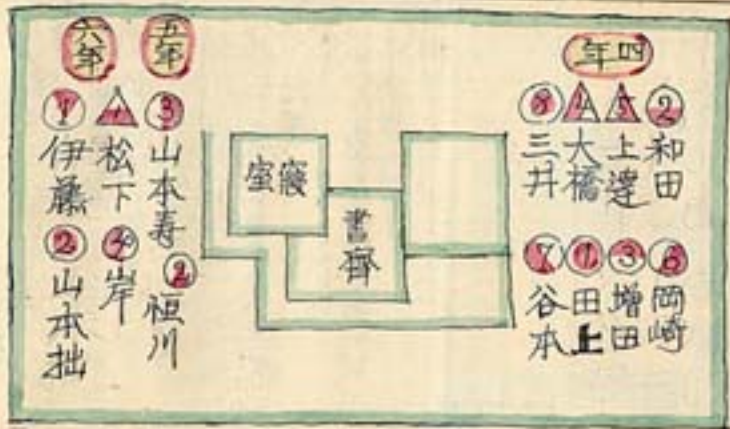 四年
② 和田
5 上邊
4 大橋
⑧ 三井
⑥ 岡崎
③ 増田
① 田上
⑦ 谷本
寝室
書齊
五年
③ 山本寿
② 恒川
六年
松下
③ 岸
① 伊藤
② 山本拙